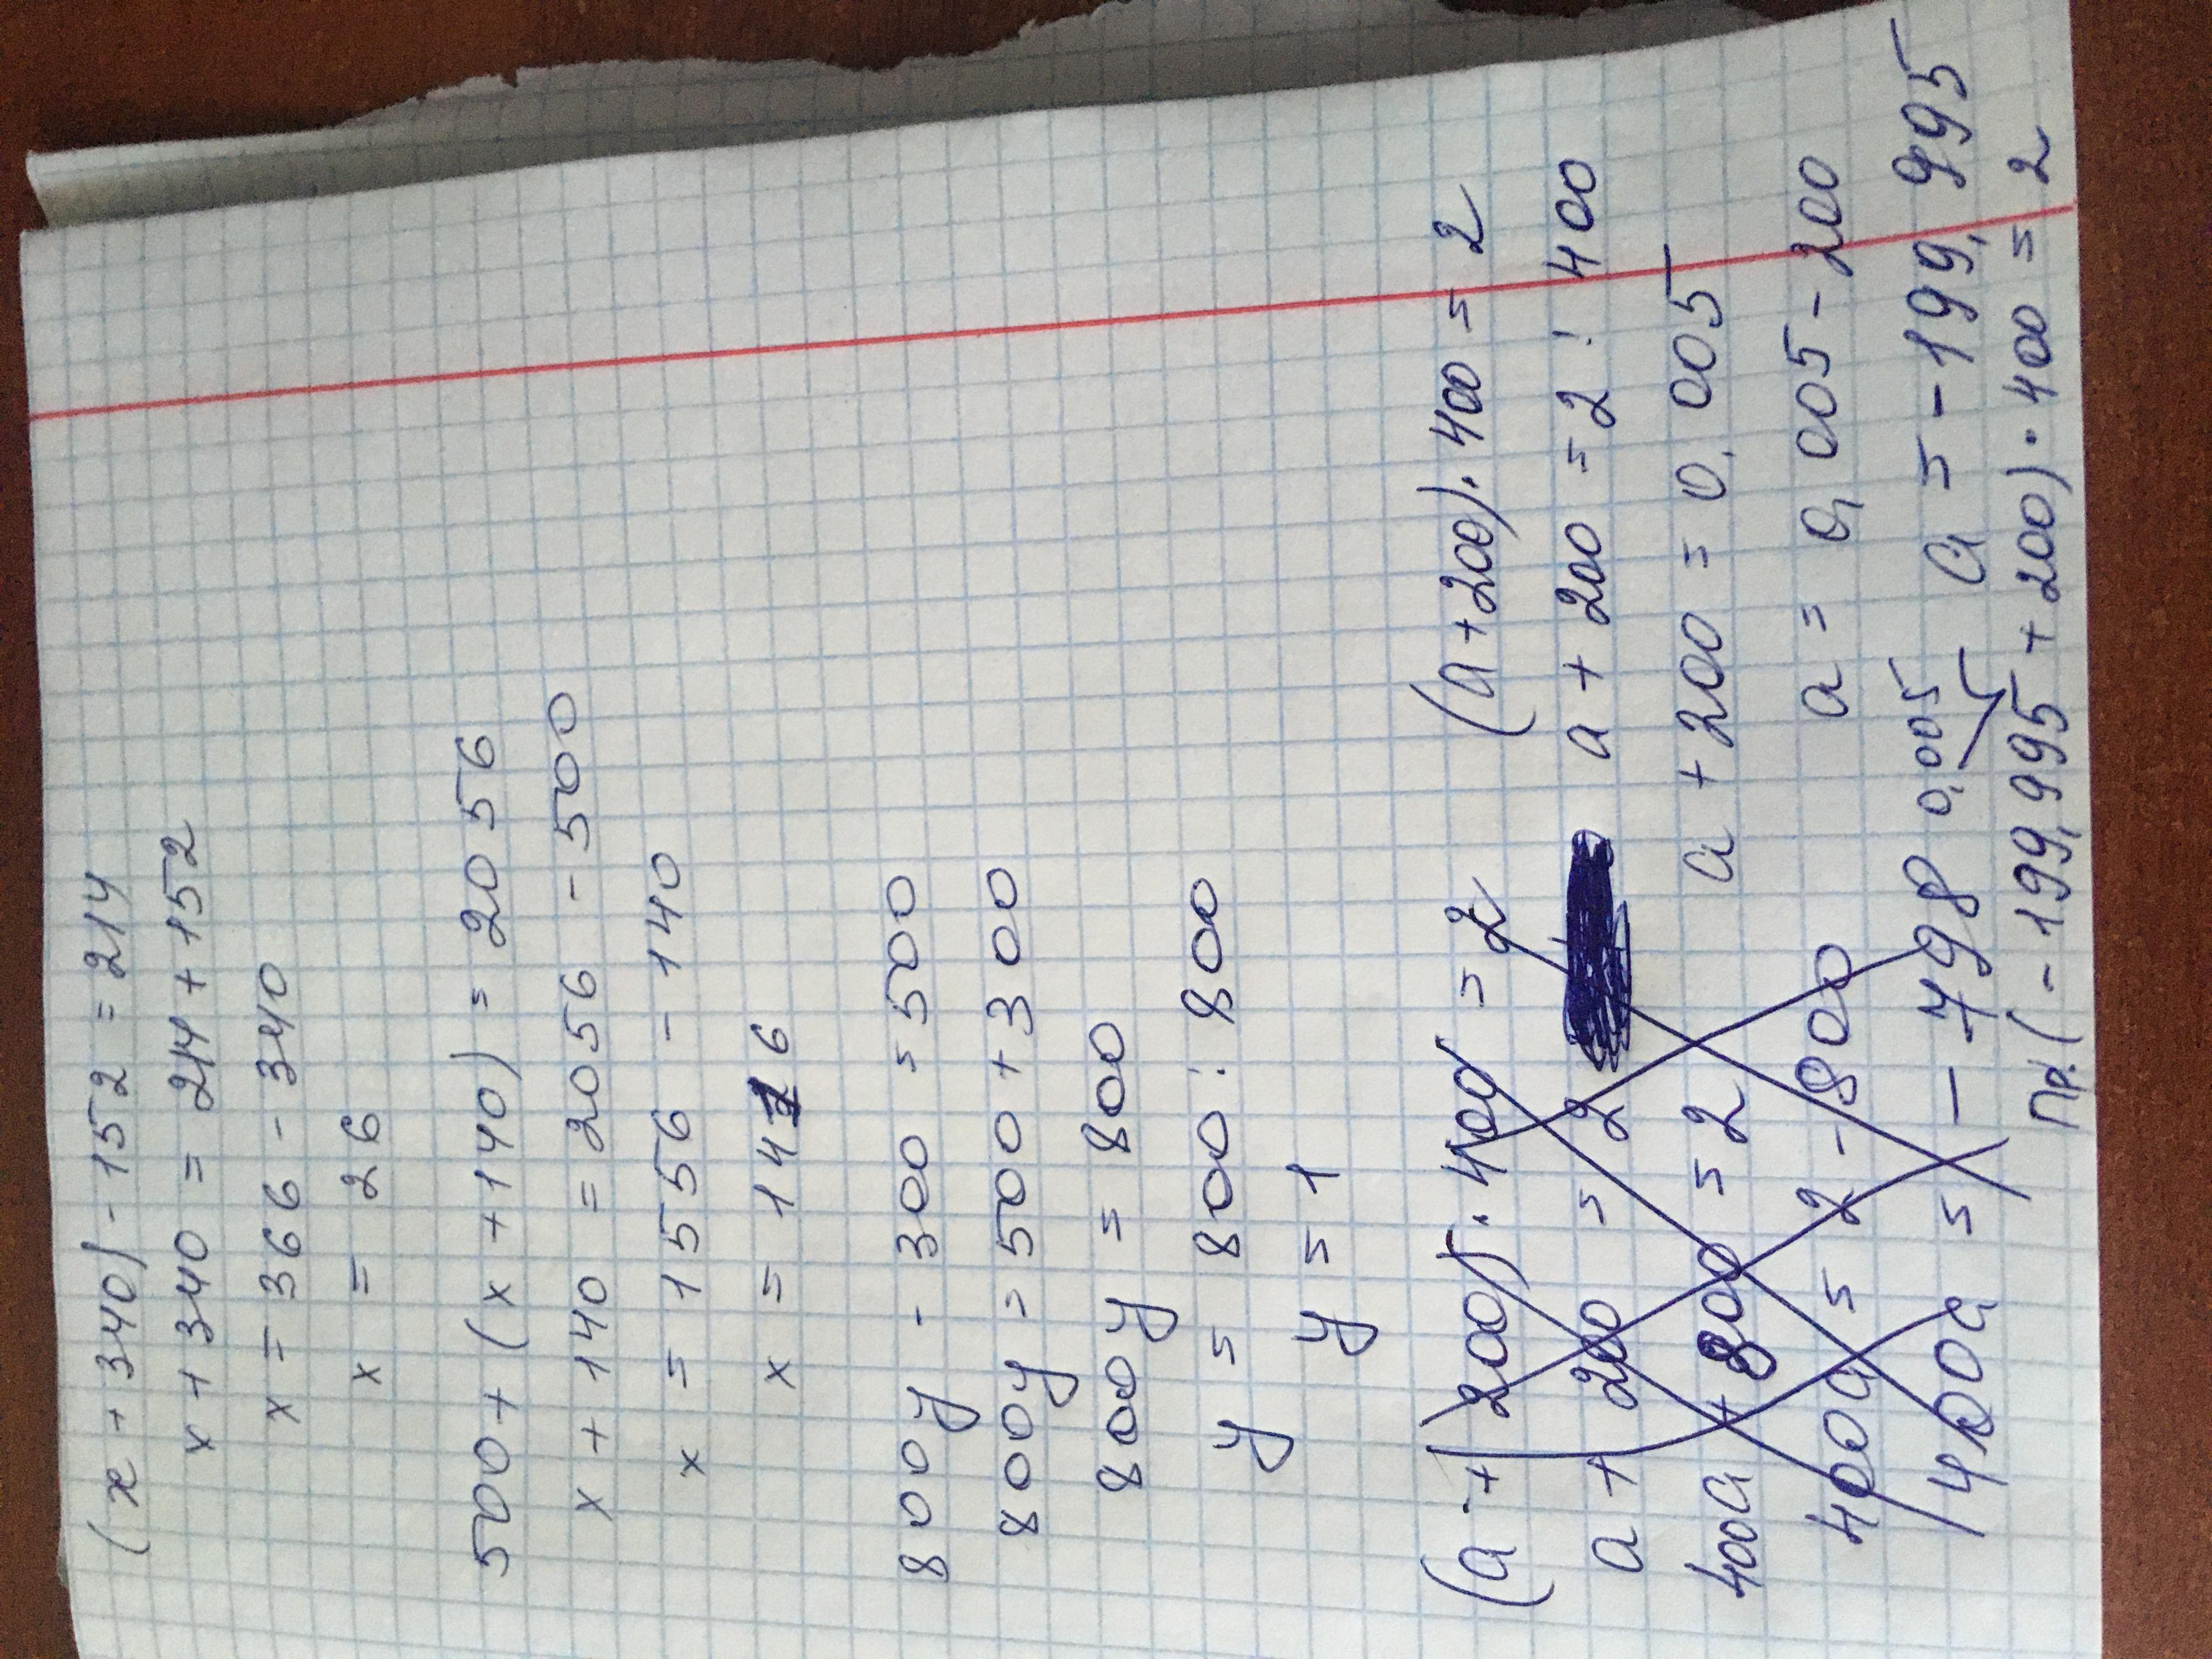 (x + 340) - 152 = 214
x + 340 = 214 + 152
x = 366 - 340
x = 26
500 + (x + 140) = 2056
x + 140 = 2056 - 500
x = 1556 - 140
x = 1416
800y - 300 = 500
800y = 500 + 300
800y = 800
y = 800 : 800
y = 1
(a + 200) · 400 = 2
a + 200 = 2
400a + 800 = 2
400a = 2 - 800
400a = - 798
(a + 200) · 400 = 2
a + 200 = 2 : 400
a + 200 = 0,005
a = 0,005 - 200
a = - 199,995
0,005
Пр. (- 199,995 + 200) · 400 = 2